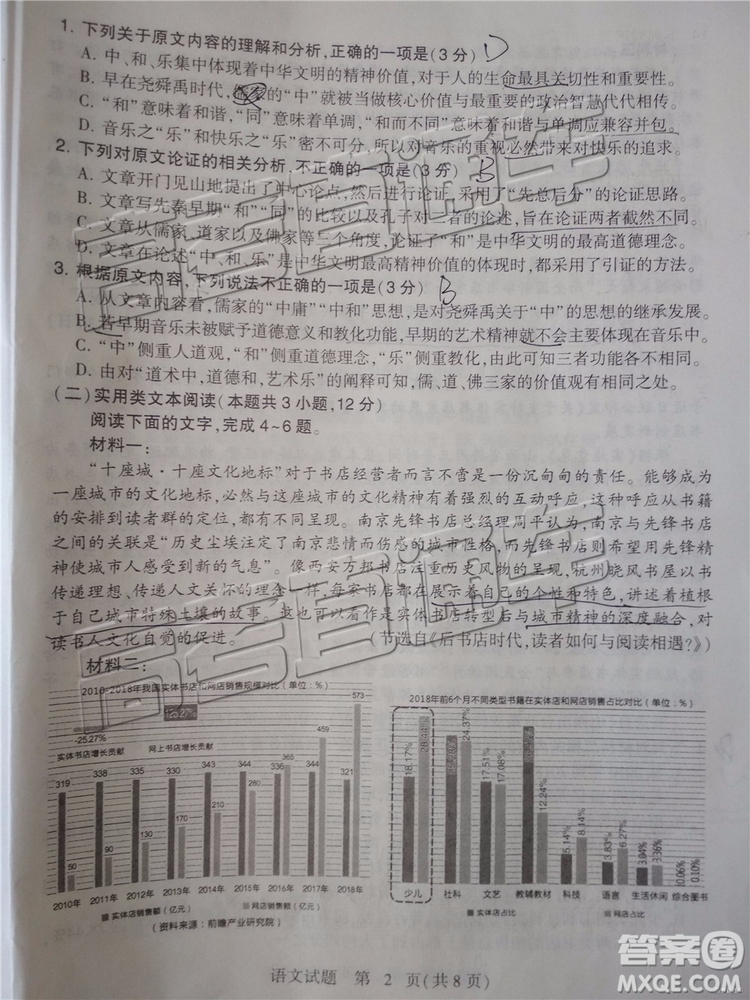 1. 下列关于原文内容的理解和分析,正确的一项是(3分) D
A. 中、和、乐集中体现着中华文明的精神价值,对于人的生命最具关切性和重要性。
B. 早在尧舜禹时代,儒家的“中”就被当做核心价值与最重要的政治智慧代代相传。
C. “和”意味着和谐,“同”意味着单调,“和而不同”意味着和谐与单调应兼容并包。
D. 音乐之“乐”和快乐之“乐”密不可分,所以对音乐的重视必然带来对快乐的追求。
2. 下列对原文论证的相关分析,不正确的一项是(3分) B
A. 文章开门见山地提出了中心论点,然后进行论证,采用了“先总后分”的论证思路。
B. 文章写先秦早期“和”“同”的比较以及孔子对二者的论述,旨在论证两者截然不同。
C. 文章从儒家、道家以及佛家等三个角度,论证了“和”是中华文明的最高道德理念。
D. 文章在论述“中、和、乐”是中华文明最高精神价值的体现时,都采用了引证的方法。
3. 根据原文内容,下列说法不正确的一项是(3分) B
A. 从文章内容看,儒家的“中庸”“中和”思想,是对尧舜禹关于“中”的思想的继承发展。
B. 若早期音乐未被赋予道德意义和教化功能,早期的艺术精神就不会主要体现在音乐中。
C. “中”侧重人道观,“和”侧重道德理念,“乐”侧重教化,由此可知三者内容上相互交叉。
D. 由对“道术中,道德和,艺术乐”的阐释可知,儒、道、佛三家的价值观有相似之处。
(二)实用类文本阅读(本题共3小题,12分)
阅读下面的文字,完成4~6题。
材料一:
“十座城·十座文化地标”对于书店经营者而言不啻是一份沉甸甸的责任。能够成为
一座城市的文化地标,必然与这座城市的文化精神有着强烈的互动呼应,这种呼应从书籍
的安排到读者群的定位,都有不同呈现。南京先锋书店总经理周平认为,南京与先锋书店
之间的关联是“历史尘埃注定了南京悲情而伤感的城市性格,而先锋书店则希望用先锋精
神使城市人感受到新的气息”。像西安万邦书店着重历史风物的呈现,杭州晓风书屋以书
传递理想、传递人文关怀的理念一样,每家书店都在展示着自己的个性和特色,讲述着植根
于自己城市特殊土壤的故事。这也可以看作是实体书店转型后与城市精神的深度融合,对
读书人文化自觉的促进。 (节选自《后书店时代,读者如何与阅读相遇?》)
材料二:
2010-2018年我国实体书店和网店销售规模对比(单位:%)
-25.27%
实体书店增长贡献 网上书店增长贡献
319 338 338 344 344 336 344 344 321
50 90 130 170 210 280 365 459 573
2010年 2011年 2012年 2013年 2014年 2015年 2016年 2017年 2018年
实体店销售额(亿元) 网店销售额(亿元)
(资料来源:前瞻产业研究院)
2018年前6个月不同类型书籍在实体店和网店销售占比对比(单位:%)
18.17% 17.51% 17.08% 12.24% 5.14% 8.14% 3.83% 6.27% 3.04% 3.36% 0.06% 0.10%
少儿 社科 文艺 教辅教材 科技 语言 生活休闲 综合图书
实体店占比 网店占比
语文试题 第 2 页(共8页)
高考直通车
答案圈
MXQE.COM